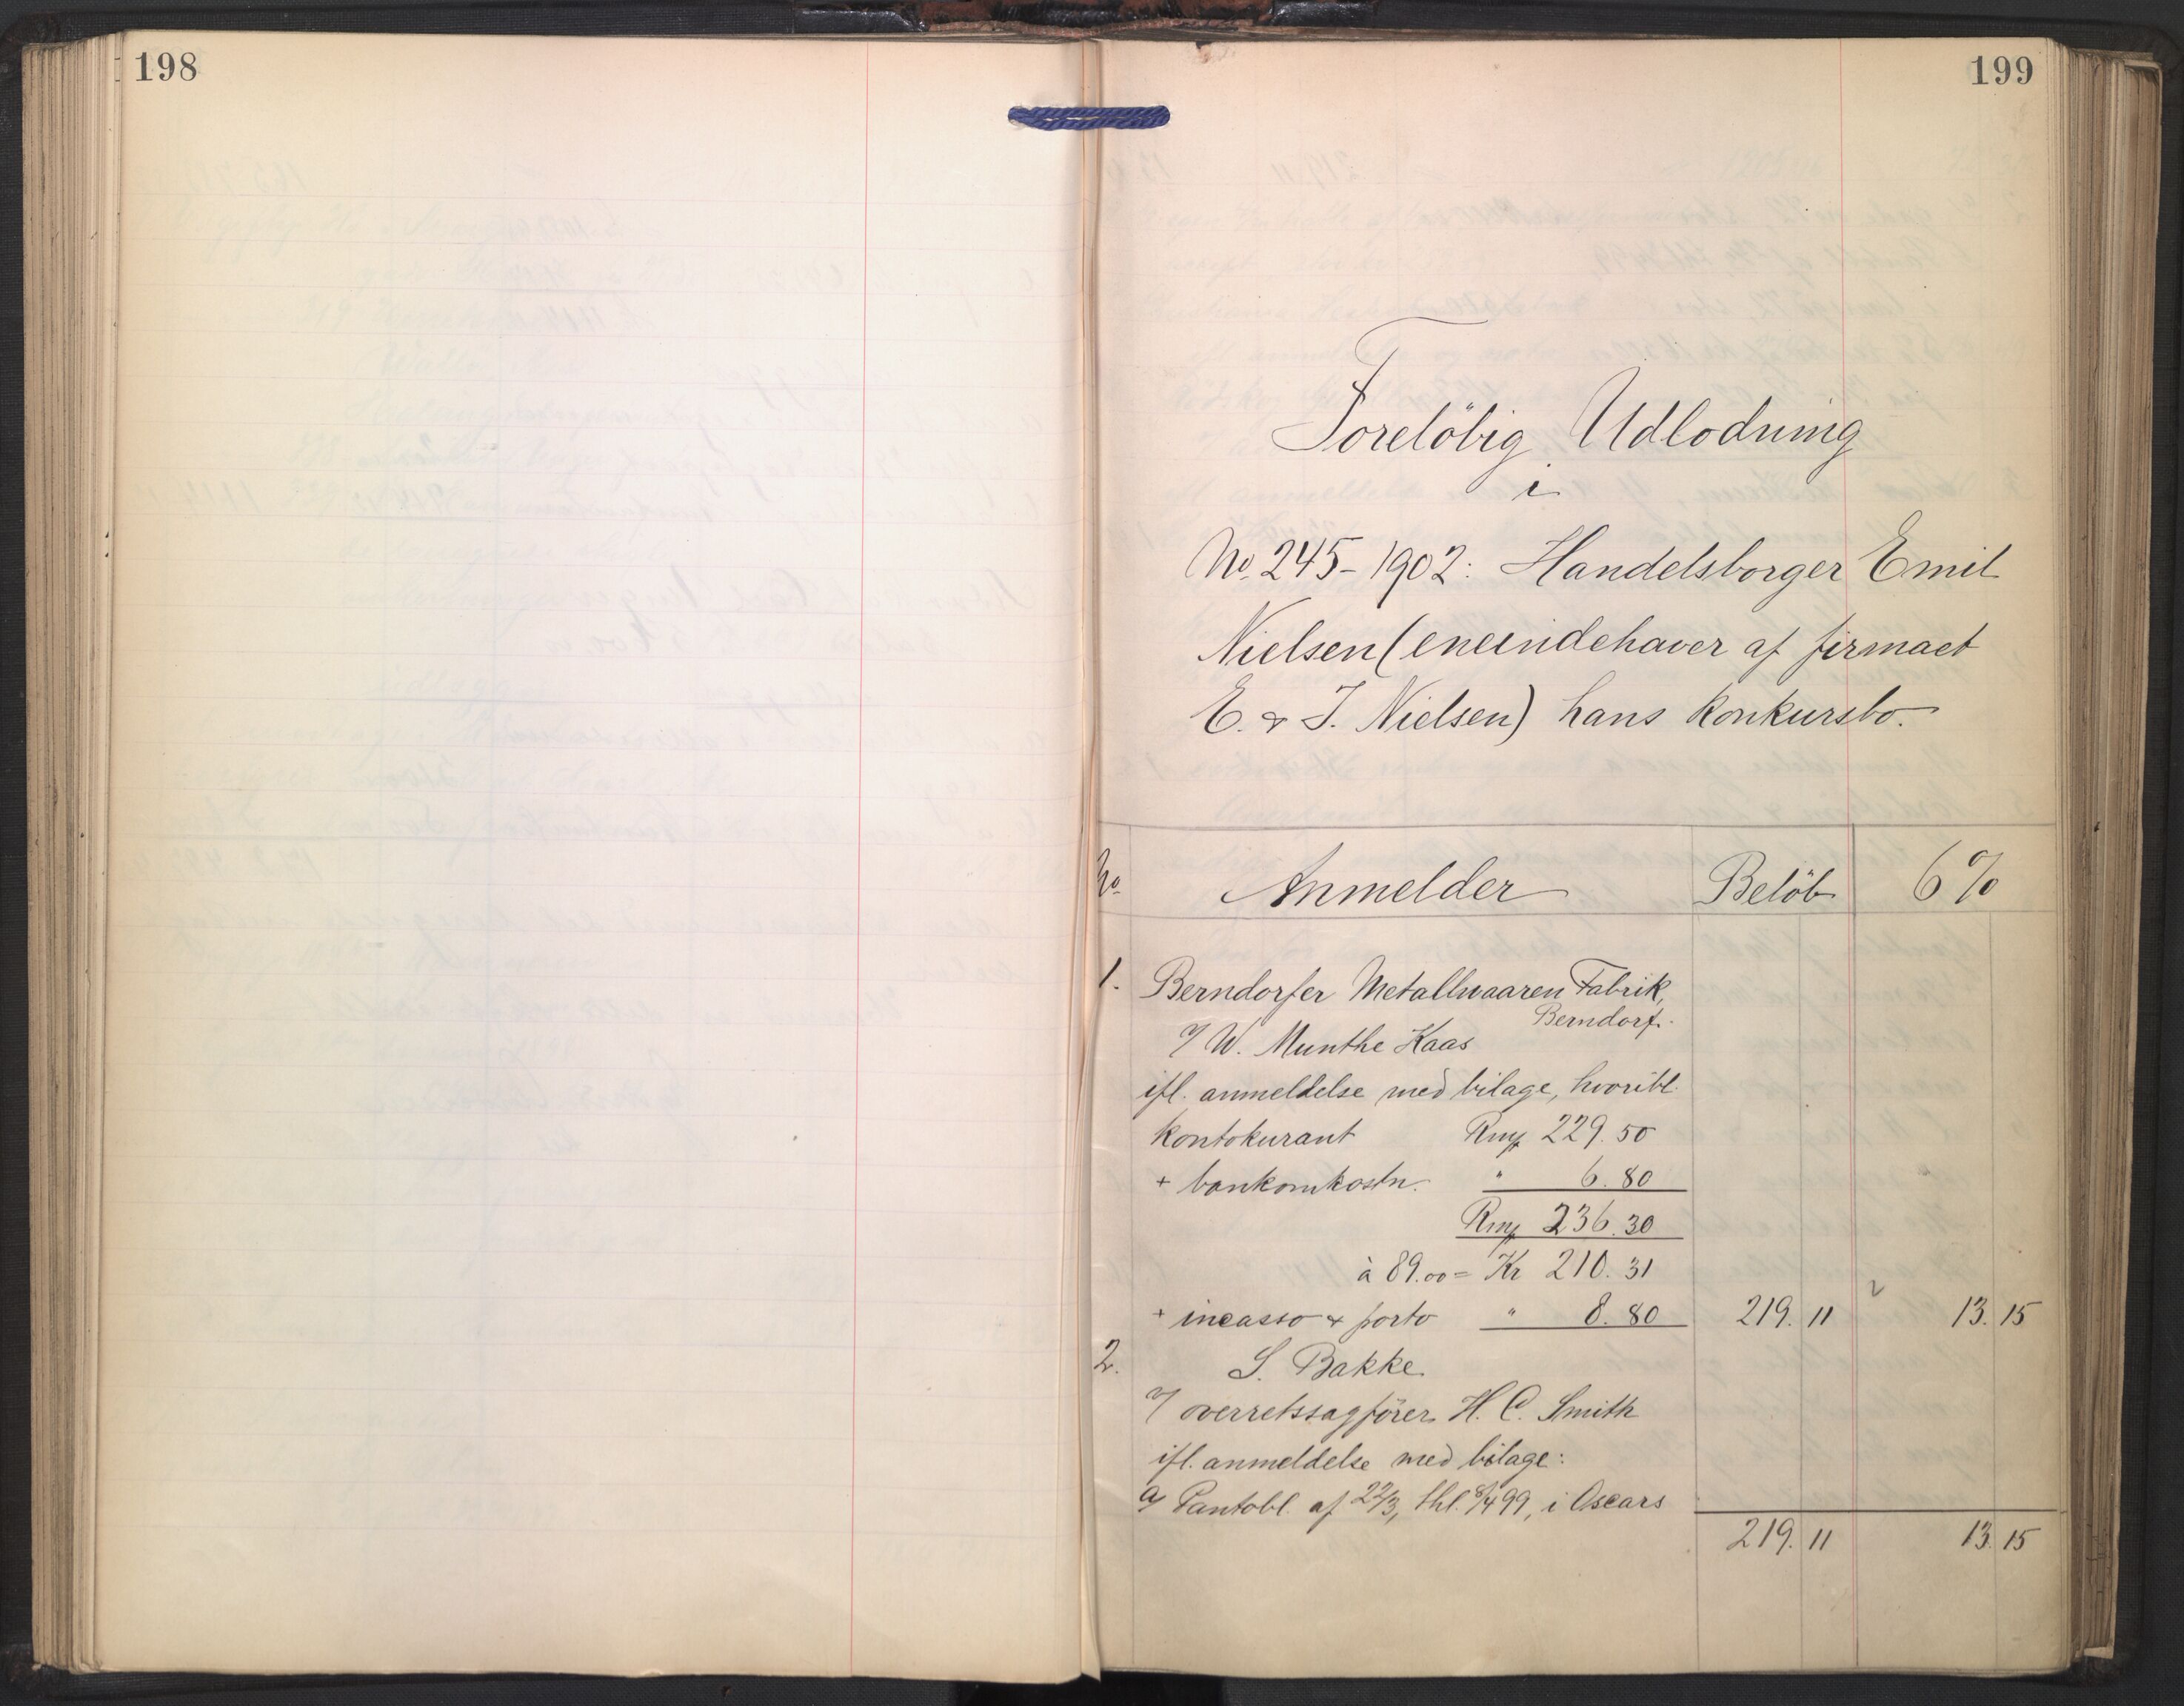 198
199
Foreløbig Udlodning
i
No 245-1902: Handelsborger Emil
Nielsen (eneindehaver af firmaet
E. & J. Nielsen) hans konkursbo.
No Anmelder Beløb 6%
1. Berndorfer Metallwaaren Fabrik,
Berndorf.
v/ W. Munthe Kaas
ifl. anmeldelse med bilage, hvoribl.
kontokurant Rmk 229.50
+ bankomkostn. " 6.80
Rmk 236.30
à 89.00 = Kr 210.31
+ incasso & porto " 8.80 219.11 13.15
2. S. Bakke
v/ overretssagfører H. C. Smith
ifl. anmeldelse med bilage:
a/ Pantobl. af 22/3, thl. 8/4 99, i Oscars
219.11 13.15